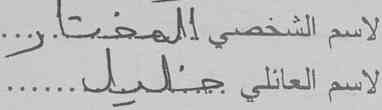 لاسم الشخصي المختار...
لاسم العائلي خليل......